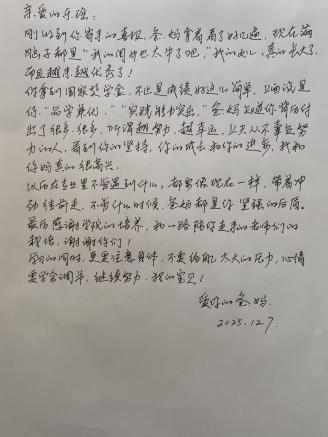 亲爱的乐瑶：
刚收到你寄来的喜报，爸、妈拿着看了好几遍，现在满
脑子都是"我的闺女也太牛了吧，"我的女儿，真的长大了，
而且越来越优秀了！
你拿到国家奖学金，不止是成绩好这么简单，上面说是
你"品学兼优"，"实践能力突出，"爸、妈知道你背后付
出了很多、很多，所谓越努力，越幸运，上天从不辜负努
力的人，看到你的坚持，你的成长和你的进步，我和
你妈真的很高兴。
以后在专业里不管遇到什么，都要像现在一样，带着冲
劲往前走，不管什么时候，爸妈都是你坚强的后盾。
最后感谢学院的培养，和一路陪你走来的老师们的
栽培，谢谢你们！
学习的同时，更要注意身体，不要给自己太大的压力，心情
要学会调节，继续努力，我的宝贝！
爱你的爸、妈
2025.12.7.